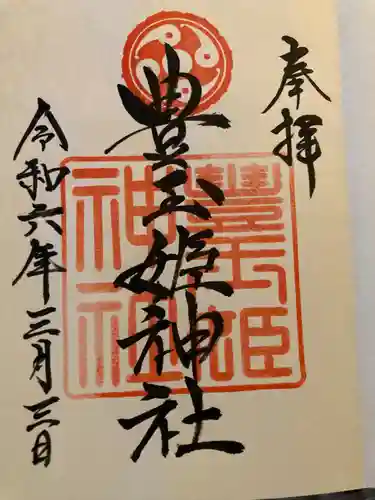 奉拝
豊玉姫神社
豐玉姫神社
令和六年三月三日